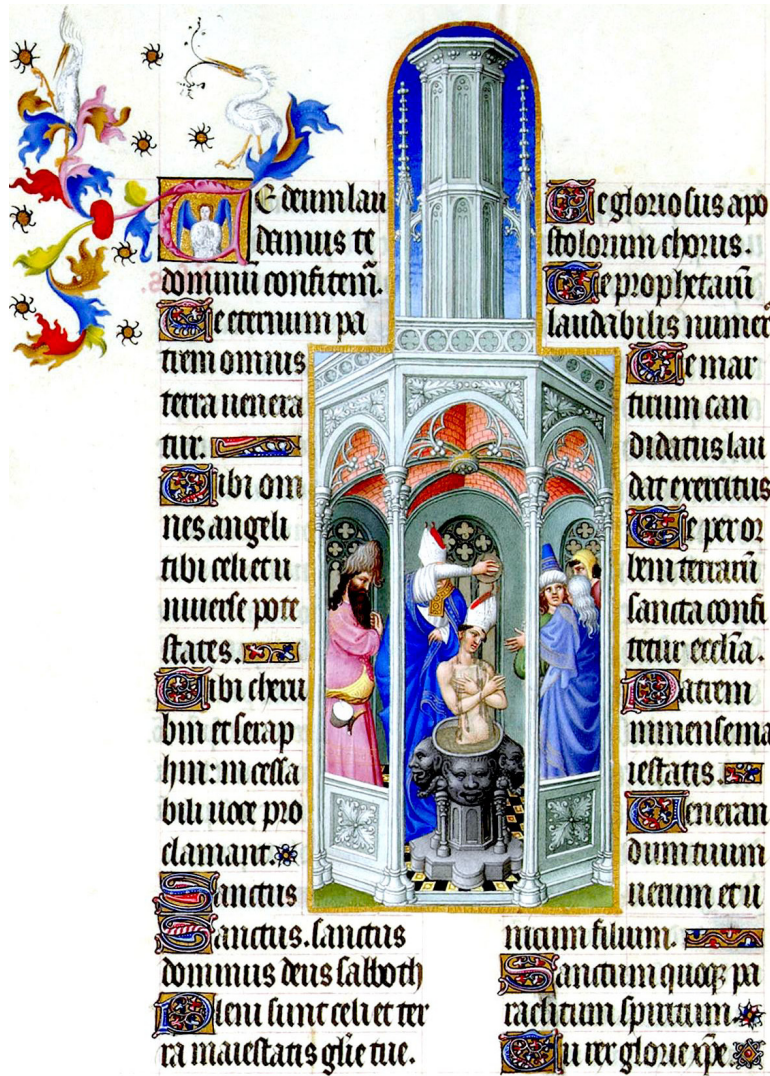 Te deum lau
damus te
dominū confitem̄.
Te eternum pa
trem omnis
terra uenera
tur.
Tibi om
nes angeli
tibi celi et u
niuerse pote
states.
Tibi cheru
bin et serap
hin: in cessa
bili uoce pro
clamant.
Sanctus
Sanctus. sanctus
dominus deus sabboth
Pleni sunt celi et ter
ra maiestatis glīe tue.
Te gloriosus apo
stolorum chorus.
Te prophetarū
laudabilis numerꝰ
Te mar
tirum can
didatus lau
dat exercitus
Te per or
bem terrarū
sancta confi
tetur eccl̄ia.
Patrem
inmense ma
iestatis.
Veneran
dum tuum
uerum et u
nicum filium.
Sanctum quoqꝫ pa
raclitum spiritum.
Tu rex glorie xp̄e.